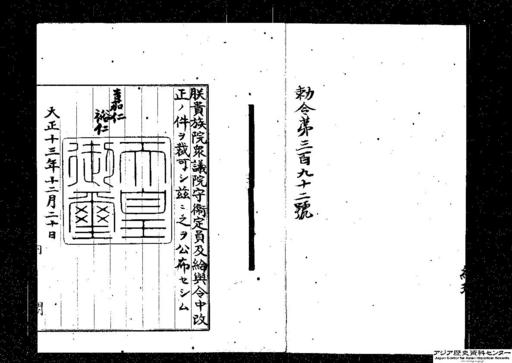 勅令第三百九十二號
朕貴族院衆議院守衞定員及給與令中改
正ノ件ヲ裁可シ茲ニ之ヲ公布セシム
嘉仁
裕仁
天皇
御璽
大正十三年十二月二十日
内
閣
アジア歴史資料センター
Japan Center for Asian Historical Records